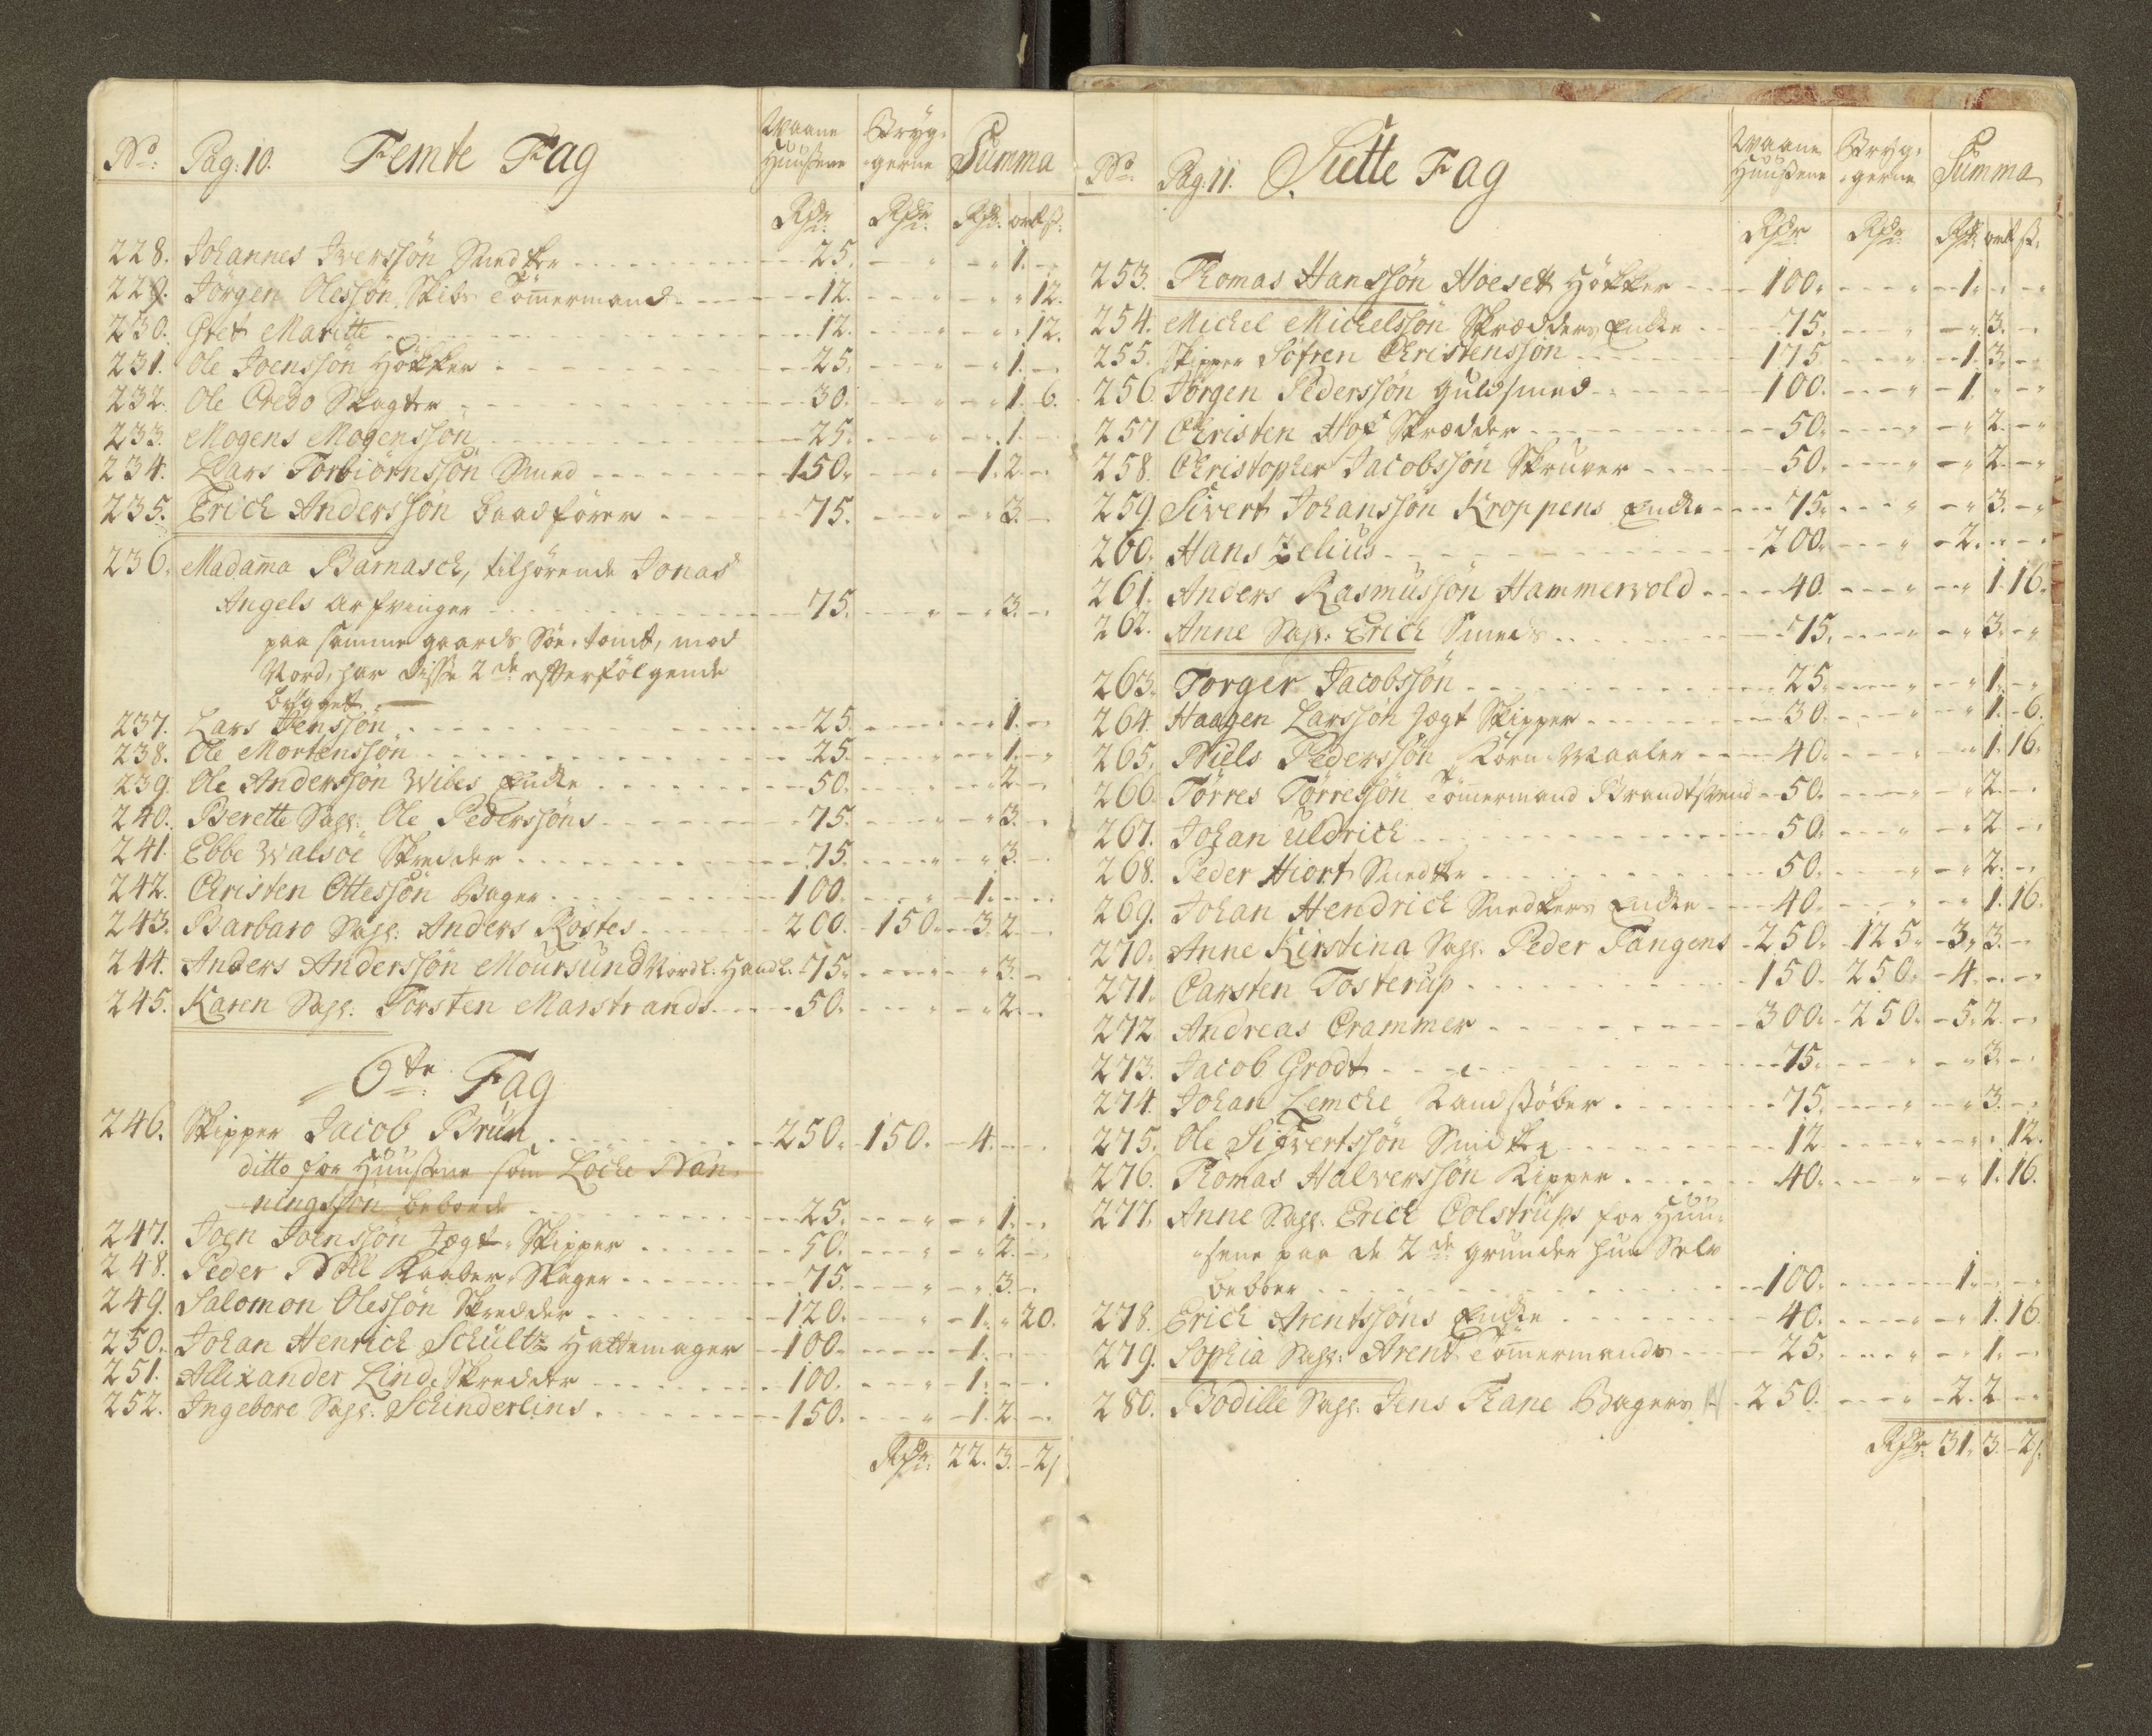 No: Pag: 10. Femte Fag Waane Huusene Bryg-gerne Summa
Rdr. Rdr. Rdr. ort. s.
228. Johannes Iverssøn Snedker 25. " " 1. -
229. Jörgen Olessøn Skibs Tömermand 12. " " " 12.
230. Gret Maritte 12. " " " 12.
231. Ole Joenssøn Hökker 25. " " 1. -
232. Ole Credo Slagter 30. " " 1. 6.
233. Mogens Mogenssøn 25. " " 1. -
234. Lars Torbiörnssøn Smed 150. " 1. 2. -
235. Erich Anderssøn Baadförer 75. " " 3. -
236. Madama Barnasch, tilhörende Jonas
Angels Arfvinger 75. " " 3. -
paa samme gaards Söe-tomt, mod
Nord, har disse 2de efterfölgende
bygget. —
237. Lars Jenssøn 25. " " 1. -
238. Ole Mortenssøn 25. " " 1. -
239. Ole Anderssøn Wibes Encke 50. " " 2. -
240. Berette Sal: Ole Pederssøns 75. " " 3. -
241. Ebbe Walsöe Skredder 75. " " 3. -
242. Christen Ottessøn Bager 100. " 1. - -
243. Barbaro Sal: Anders Rostes 200. 150. 3. 2. -
244. Anders Anderssøn Moursund Nordl. Handl. 75. " " 3. -
245. Karen Sal: Torsten Marstrands 50. " " 2. -
6te Fag
246. Skipper Jacob Brun 250. 150. 4. - -
ditto for Huusene som Löche Bön-
ningssøn beboede 25. " " 1. -
247. Joen Joenssøn Jægt-Skipper 50. " " 2. -
248. Peder Böll Kaaber-Slager 75. " " 3. -
249. Salomon Olessøn Skredder 120. " 1. " 20.
250. Johan Henrich Schultz Hattemager 100. " 1. - -
251. Allixander Lind Skredder 100. " 1. - -
252. Ingebore Sal: Schinderlins 150. " 1. 2. -
Rdr. 22. 3. - 2s
No Pag: 11. Siette Fag Waane Huusene Bryg-gerne Summa
Rdr. Rdr. Rdr. ort s.
253. Thomas Hanssøn Hoesett Hökker 100. " 1. - "
254. Michel Michelssøn Skrædders Encke 75. " " 3. -
255. Skipper Söfren Christenssøn 175 " 1. 3. -
256. Jörgen Pederssøn Guldsmed 100. " 1. " -
257 Christen Hof Skrædder 50. " " 2. -
258. Christopher Jacobssøn Skruver 50. " " 2. -
259. Sivert Johanssøn Kroppens Encke 75. " " 3. -
260. Hans Zelius 200. " 2. - -
261. Anders Rasmussøn Hammervold 40. " " 1. 16.
262. Anne Sal: Erich Smeds 75. " " 3. -
263. Torger Jacobssøn 25. " " 1. -
264. Haagen Larssøn Jægt Skipper 30. " " 1. 6.
265. Niels Pederssøn Korn-Maaler 40. " " 1. 16.
266. Törres Törressøn Tömermand Brandtsvend 50. " " 2. -
267. Johan Uldrich 50. " " 2 -
268. Peder Hiort Snedker 50. " " 2. -
269. Johan Hendrich Snedkers Encke 40. " " 1. 16.
270. Anne Kirstina Sal: Peder Tangens 250. 125. 3. 3. -
271. Carsten Tosterup 150. 250. 4. - -
272. Andreas Crammer 300. 250. 5. 2. -
273. Jacob Grodt 75. " " 3. -
274. Johan Lemche 75. " " 3. -
275. Ole Sifvertssøn Snidker 12 " " " 12.
276. Thomas Halverssøn Kipper 40. " " 1. 16.
277. Anne Sal: Erich Colstrups for Huu-
sene paa de 2de grunder hun Selv
beboer 100. " 1. - -
278. Erich Arentssøns Encke 40. " " 1. 16
279. Sophia Sal: Arent Tömermands 25. " " 1. -
280. Bodille Sal: Jens Thane Bagers 250. " 2. 2. -
Rdr. 31. 3. - 2s.